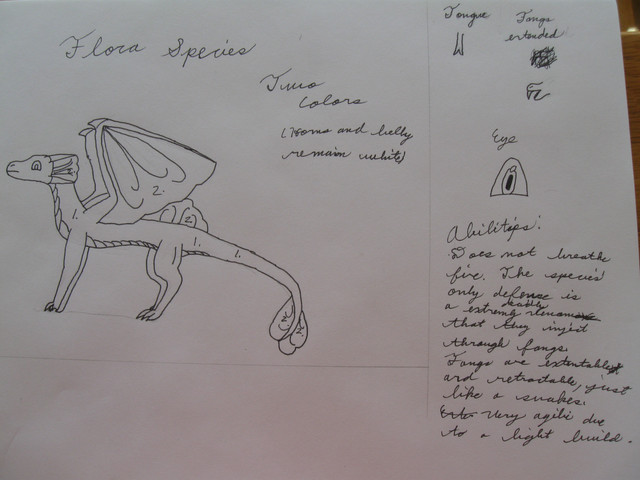 Flora Species
Two
Colors
(Horns and belly
remain white)
2.
2.
1.
1.
1.
2.
Tongue
Fangs
extended
Eye
Abilities:
Does not breathe
fire. The species'
only defense is
a extremly deadly
that they inject
through fangs.
Fangs are extentable
and retractable, just
like a snakes.
Very agile due
to a light build.